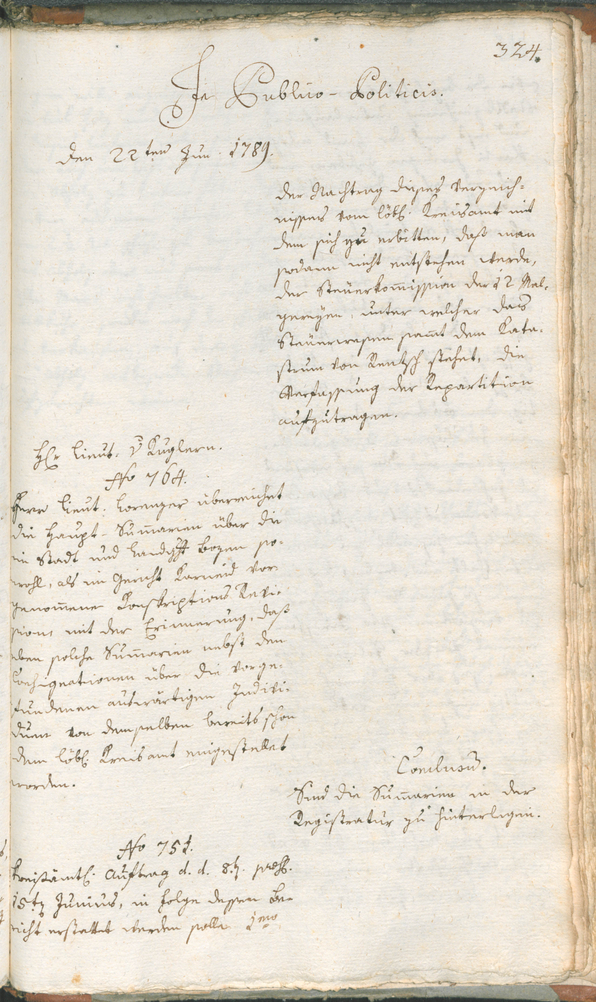 324.
In Publico-Politicis.
den 22ten Jun. 1789.
der Nachtrag dieses Verzeich-
nisses vom löbl. Kreisamt mit
dem sich zu erbitten, daß man
sodann nicht entstehen werde,
der Steuerkommission der 12 Mal-
greyen, unter welcher das
Steuerwesen sammt dem Kata-
strum von Rentsch stehet, die
Verfassung der Repartition
aufzutragen.
Hr Lieut. v Kuglern.
No 764.
Herr Lieut. Lorenzer überreichet
die Haupt-Summarien über die
in Stadt und Landght Bozen so-
wohl, als im Gericht Karneid vor
genommene Conskriptions Revi-
sion mit der Erinnerung, daß
eben solche Summarien nebst den
Consignationen über die vorge-
fundenen auswärtigen Indivi-
duen von demselben bereits schon
dem löbl. Kreisamt eingestellet
worden.
Conclusum.
Sind die Summarien in der
Registratur zu hinterlegen.
No 751.
Kreisämtl. Auftrag d. d. 8t. præs.
15ten Junius, in Folge dessen Be-
richt erstattet werden solle 1mo